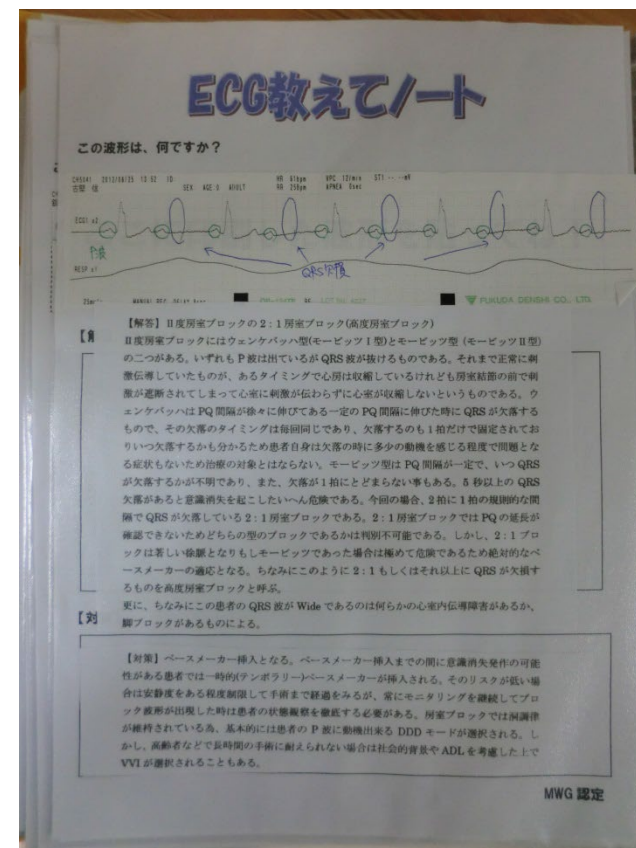 ECG教えてノート
この波形は、何ですか？
CH5041 2012/08/25 13 52 ID
SEX AGE 0 ADULT
HR 61bpm
RR 25Bpm
VPC 12/min
APNEA 0sec
ST1 -- --mV
ECG1 x2
P波
QRS欠損
RESP x1
FUKUDA DENSHI CO., LTD.
【解答】Ⅱ度房室ブロックの2：1房室ブロック(高度房室ブロック)
Ⅱ度房室ブロックにはウェンケバッハ型(モービッツⅠ型)とモービッツ型（モービッツⅡ型)
の二つがある。いずれもP波は出ているがQRS波が抜けるものである。それまで正常に刺
激伝導していたものが、あるタイミングで心房は収縮しているけれども房室結節の前で刺
激が遮断されてしまって心室に刺激が伝わらずに心室が収縮しないというものである。ウ
ェンケバッハはPQ間隔が徐々に伸びてある一定のPQ間隔に伸びた時にQRSが欠落する
もので、その欠落のタイミングは毎回同じであり、欠落するのも1拍だけで固定されてお
りいつ欠落するかも分かるため患者自身は欠落の時に多少の動機を感じる程度で問題とな
る症状もないため治療の対象とはならない。モービッツ型はPQ間隔が一定で、いつQRS
が欠落するかが不明であり、また、欠落が1拍にとどまらない事もある。5秒以上のQRS
欠落があると意識消失を起こしたいへん危険である。今回の場合、2拍に1拍の規則的な間
隔でQRSが欠落している2：1房室ブロックである。2：1房室ブロックではPQの延長が
確認できないためどちらの型のブロックであるかは判別不可能である。しかし、2：1ブロ
ックは著しい徐脈となりもしモービッツであった場合は極めて危険であるため絶対的なペ
ースメーカーの適応となる。ちなみにこのように2：1もしくはそれ以上にQRSが欠損す
るものを高度房室ブロックと呼ぶ。
更に、ちなみにこの患者のQRS波がWideであるのは何らかの心室内伝導障害があるか、
脚ブロックがあるものによる。
【対
【対策】ペースメーカー挿入となる。ペースメーカー挿入までの間に意識消失発作の可能
性がある患者では一時的(テンポラリー)ペースメーカーが挿入される。そのリスクが低い場
合は安静度をある程度制限して手術まで経過をみるが、常にモニタリングを継続してブロ
ック波形が出現した時は患者の状態観察を徹底する必要がある。房室ブロックでは洞調律
が維持されている為、基本的には患者のP波に動機出来るDDDモードが選択される。し
かし、高齢者などで長時間の手術に耐えられない場合は社会的背景やADLを考慮した上で
VVIが選択されることもある。
MWG 認定